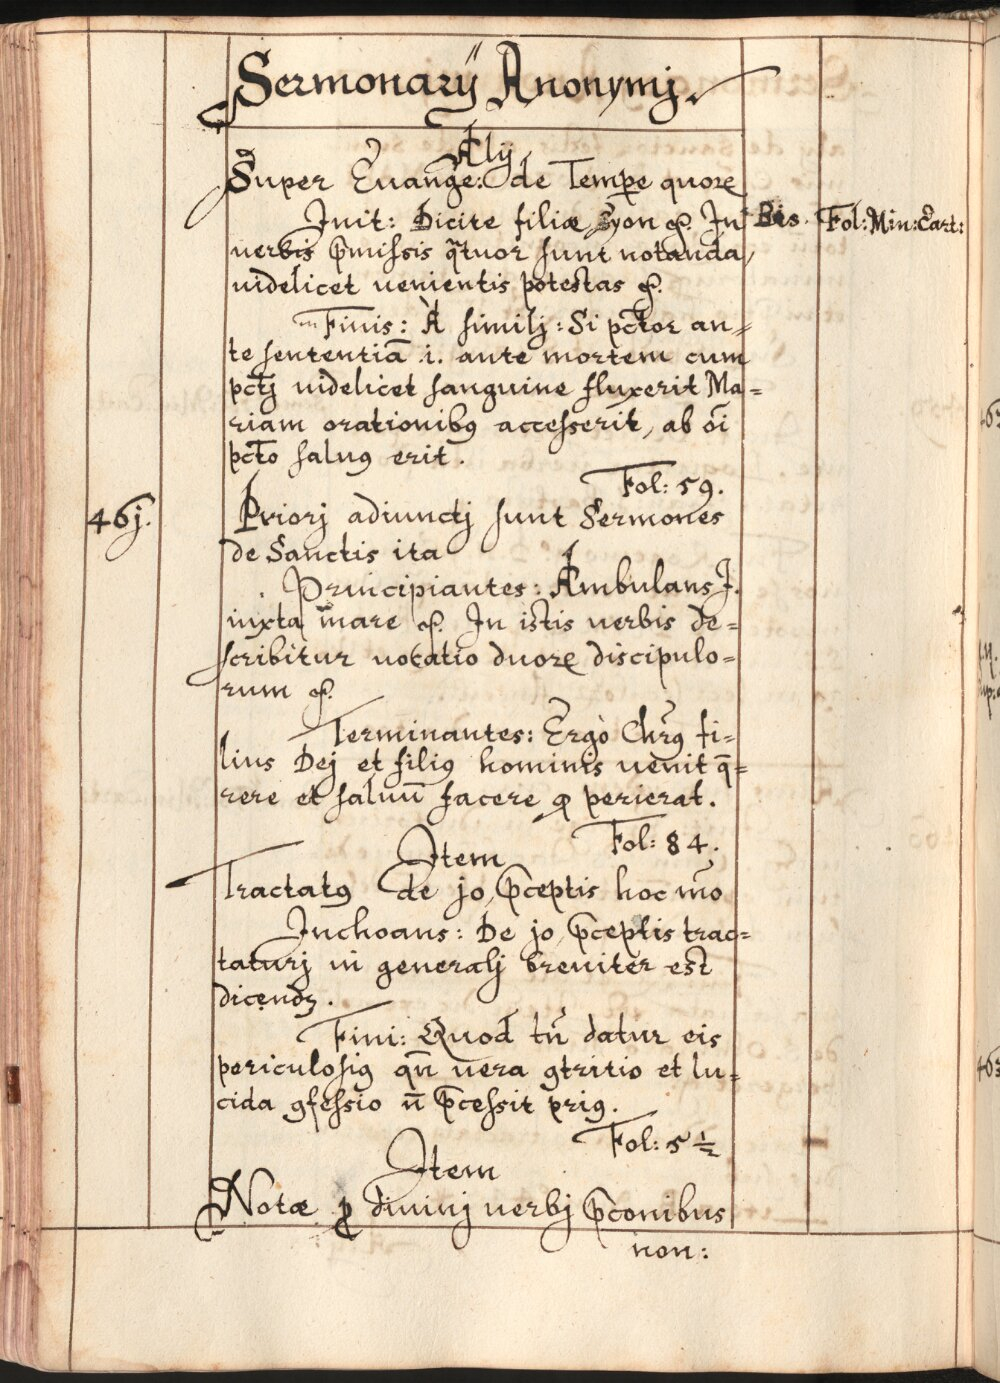 Sermonarÿ Anonymj.
Alÿ
Super Euange: de Tempe quorꝝ
Init: Dicite filiæ Syon &. In Bis. Fol: Min: Cart:
uerbis p̄missis q̄tuor sunt notanda,
uidelicet uenientis potestas &.
Finis: À similj: Si pctor an=
te sententiā .i. ante mortem cum
pctj uidelicet sanguine fluxerit Ma=
riam orationibꝰ accesserit, ab oī
pcto saluꝰ erit.
Fol: 59.
46j. Priorj adiunctj sunt Sermones
de Sanctis ita
Principiantes: Ambulans J.
iuxta mare &. In istis uerbis de=
scribitur uocatio duorꝝ discipulo=
rum &.
Terminantes: Ergò Chrꝰ fi=
lius Dej et filiꝰ hominis uenit q̄=
rere et saluū facere qꝫ perierat.
Fol: 84.
Item
Tractatꝰ de jo p̄ceptis hoc mō
Inchoans: De jo p̄ceptis trac=
taturj in generalj breuiter est
dicendꝫ.
Fini: Quod tn̄ datur eis
periculosiꝰ qn̄ uera ꝯtritio et lu=
cida ꝯfessio n̄ p̄cessit priꝰ.
Fol: 5 ½
Item
Notæ ꝓ diuinj uerbj p̄conibus
non: